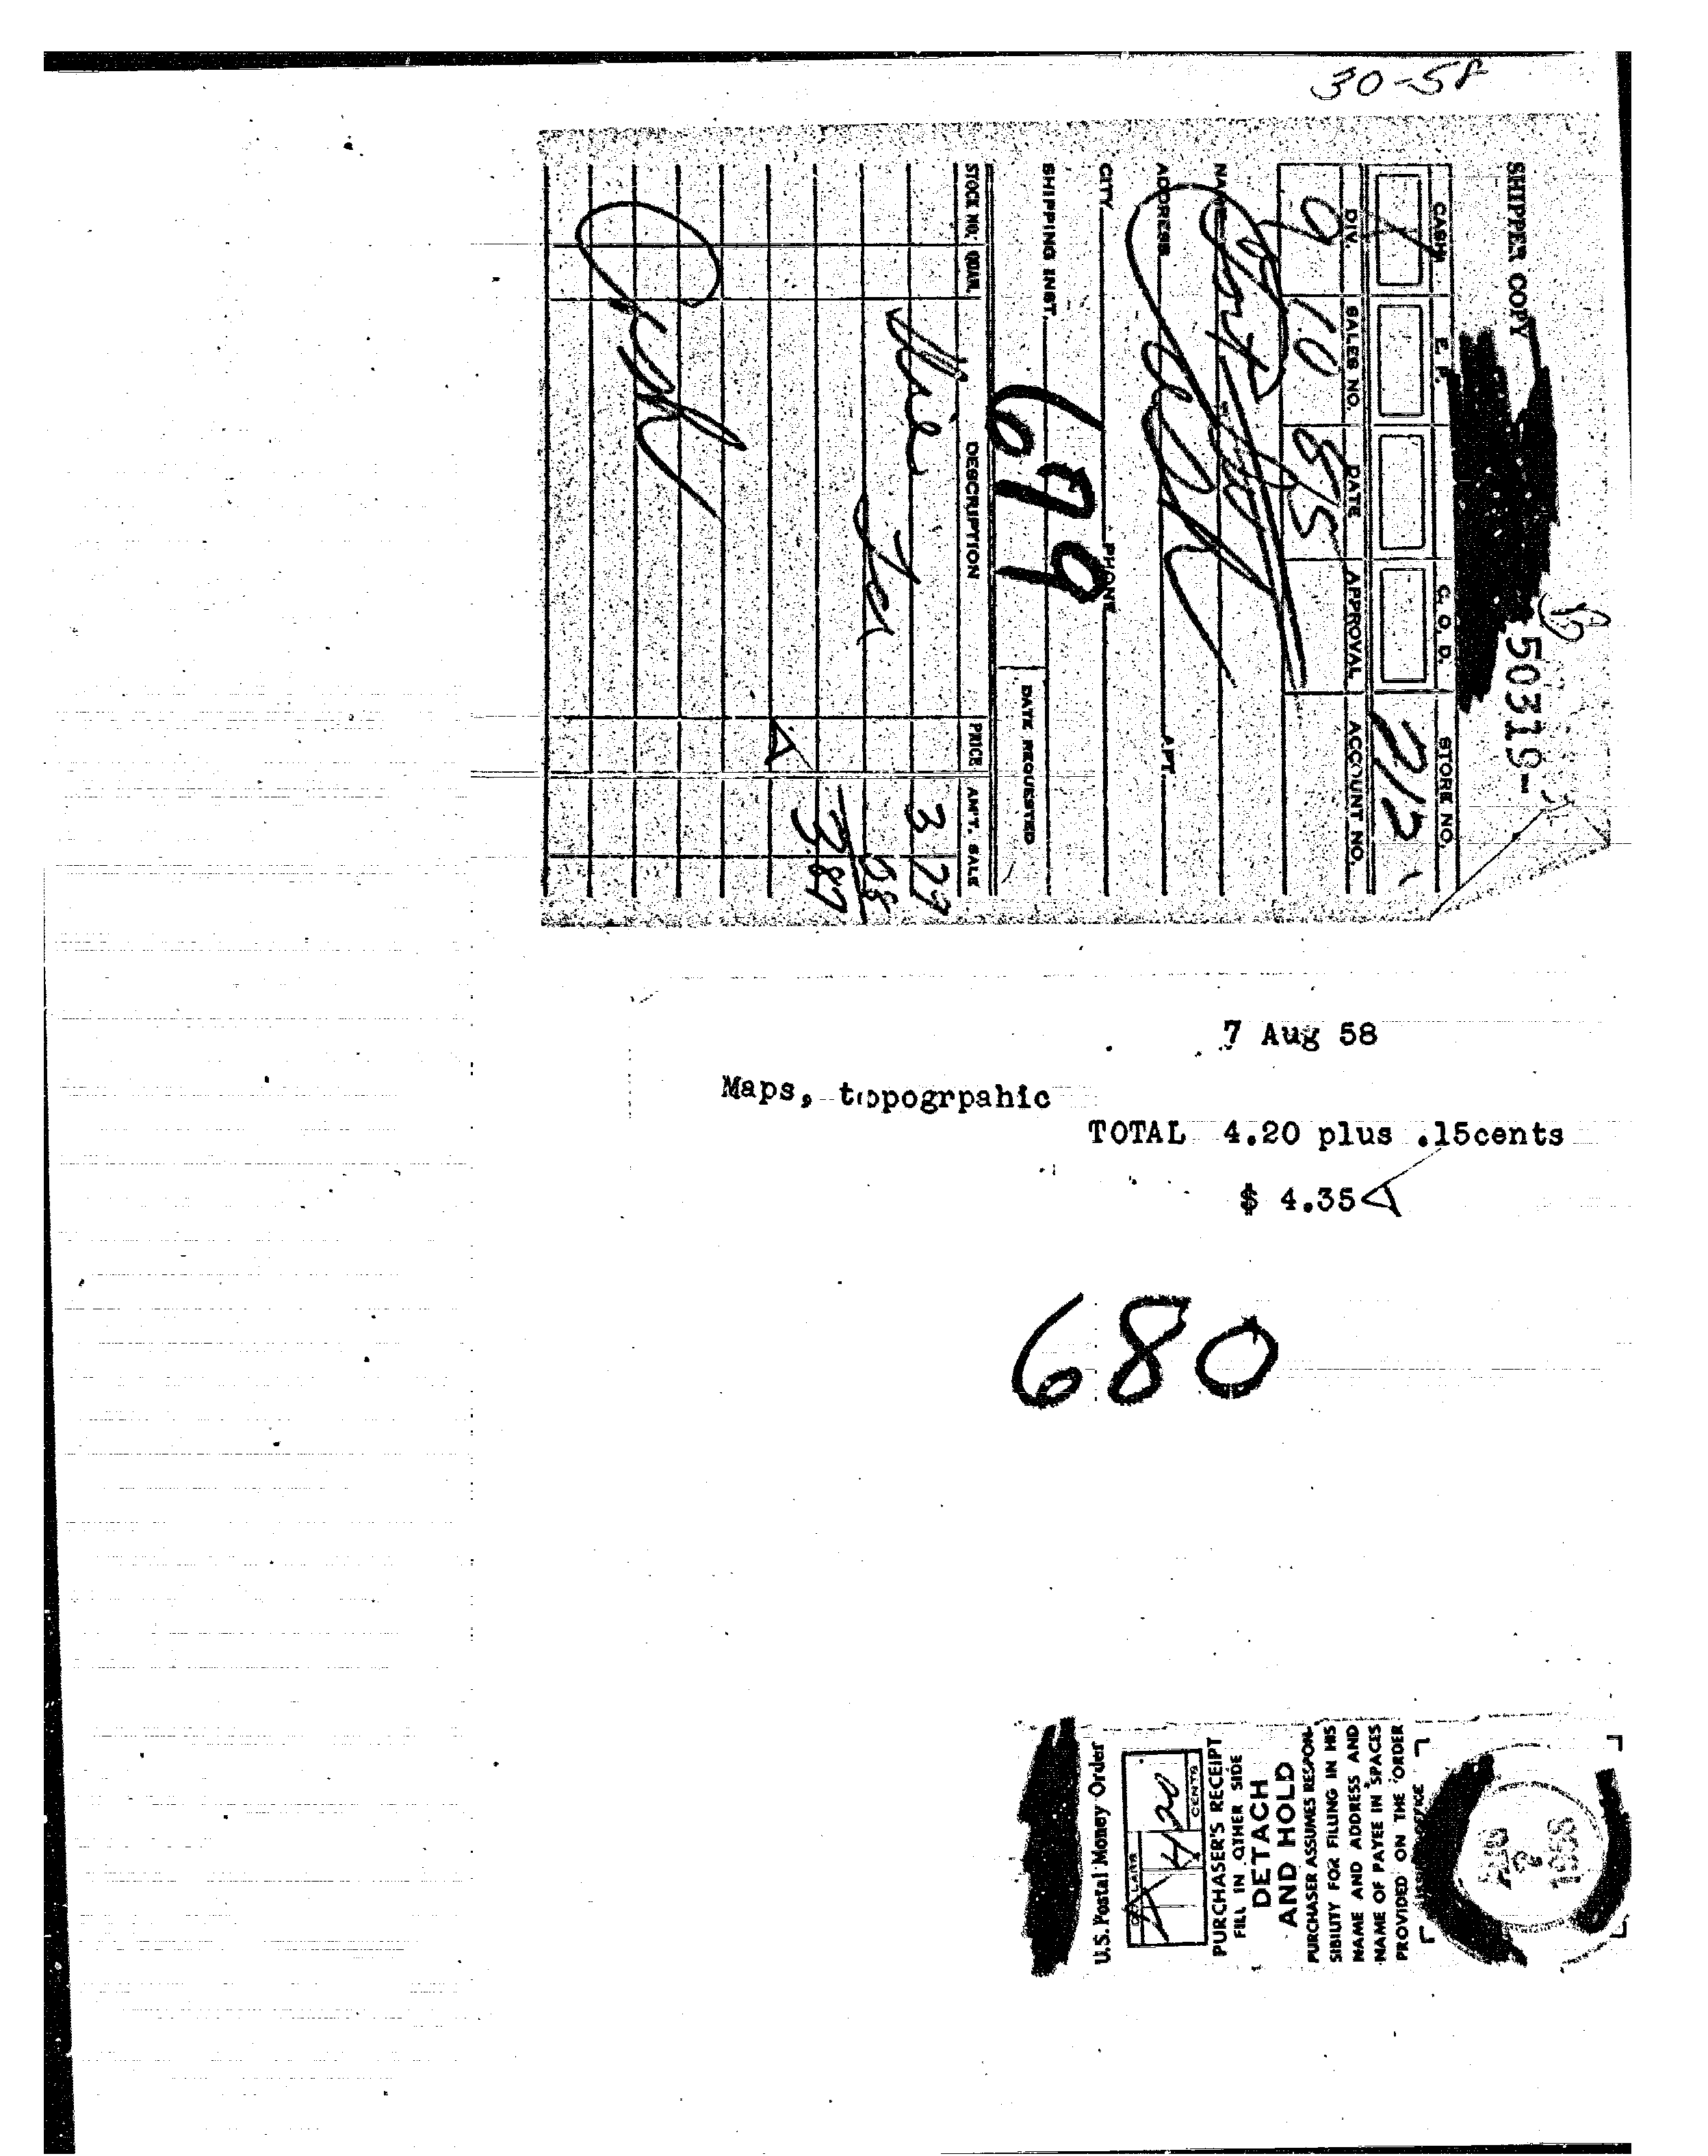 30-58
SHIPPER COPY
50319-
CASH. E. P. C. O. D. STORE NO.
212
DIV. SALES NO. DATE APPROVAL ACCOUNT NO.
9 10 8/5
NAME
ADDRESS APT.
CITY PHONE
SHIPPING INST.
DATE REQUESTED
679
STOCK NO. QUAN. DESCRIPTION PRICE AM'T. SALE
3 79
08
3 87
Cash
7 Aug 58
Maps, topogrpahic
TOTAL 4.20 plus .15cents
$ 4.35
680
U.S. Postal Money Order
DOLLARS CENTS
4 20
PURCHASER'S RECEIPT
FILL IN OTHER SIDE
DETACH
AND HOLD
PURCHASER ASSUMES RESPON-
SIBILITY FOR FILLING IN HIS
NAME AND ADDRESS AND
NAME OF PAYEE IN SPACES
PROVIDED ON THE ORDER
ISSUING OFFICE
AUG
7
1958